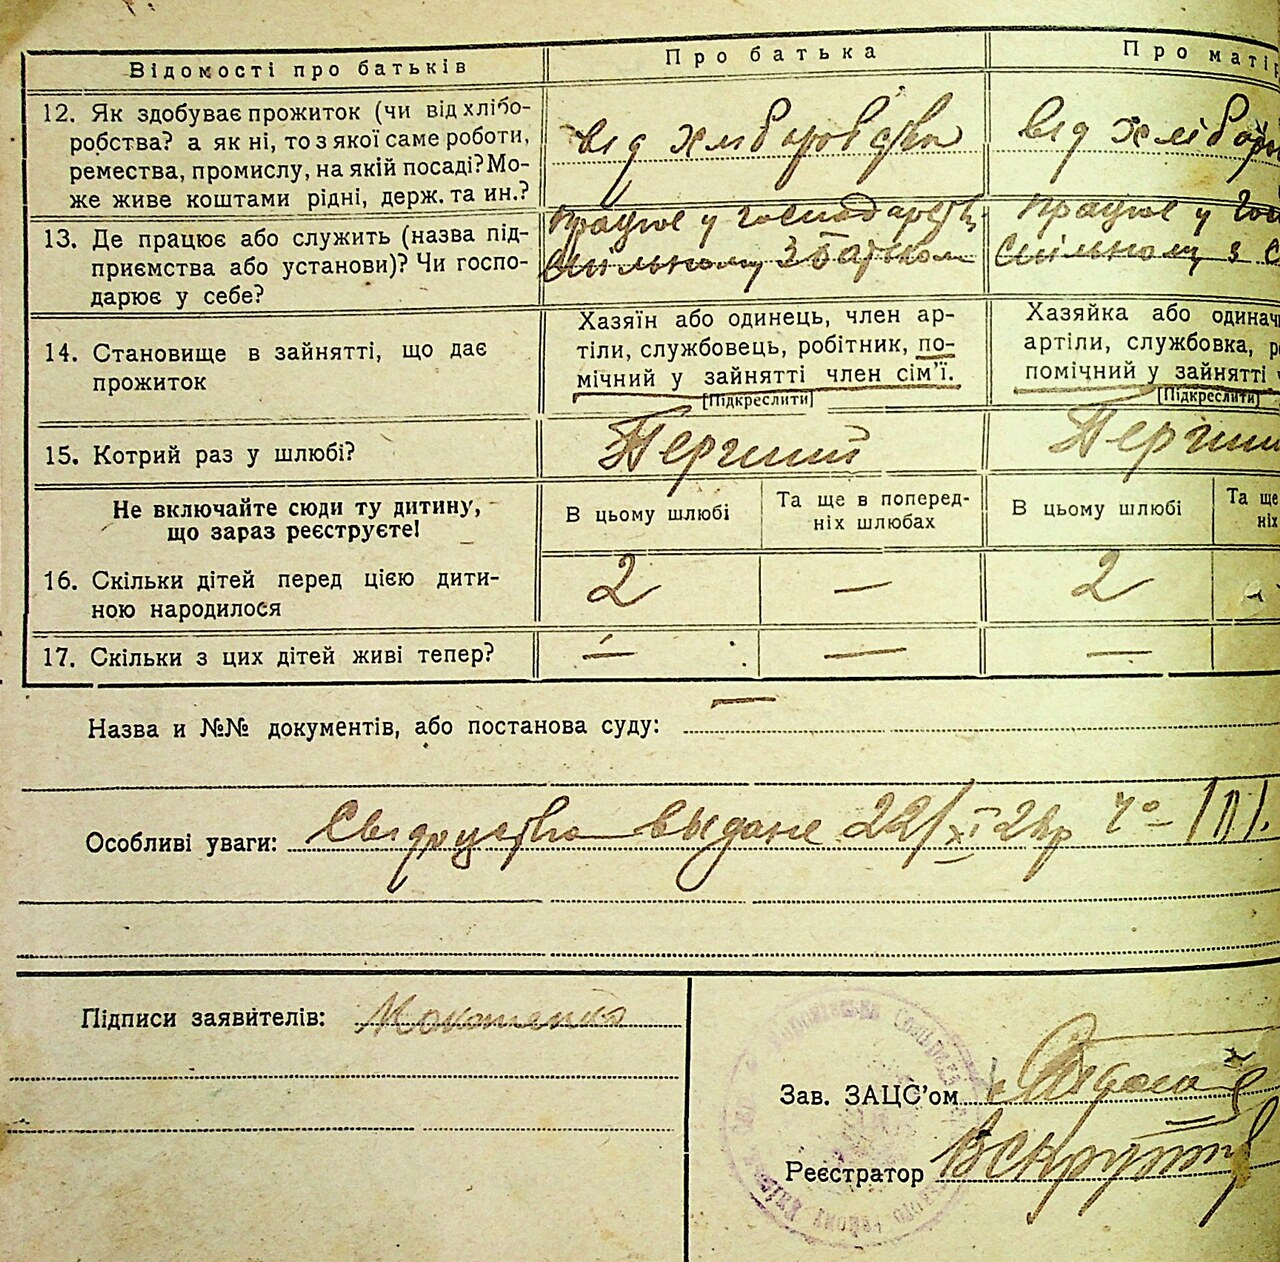 Відомості про батьків
Про батька
Про матір
12. Як здобуває прожиток (чи від хлібо-
робства? а як ні, то з якої саме роботи,
ремества, промислу, на якій посаді? Мо-
же живе коштами рідні, держ. та ин.?
від хліборобства
від хлібор
13. Де працює або служить (назва під-
приємства або установи)? Чи госпо-
дарює у себе?
Працює у господарстві
спільному з батьком
Працює у гос
спільному з
14. Становище в зайнятті, що дає
прожиток
Хазяїн або одинець, член ар-
тіли, службовець, робітник, по-
мічний у зайнятті член сім'ї.
[Підкреслити]
Хазяйка або одинач
артіли, службовка, р
помічний у зайнятті
[Підкреслити]
15. Котрий раз у шлюбі?
Перший
Перший
Не включайте сюди ту дитину,
що зараз реєструєте!
В цьому шлюбі
Та ще в поперед-
ніх шлюбах
В цьому шлюбі
Та ще
ніх
16. Скільки дітей перед цією дити-
ною народилося
2
—
2
17. Скільки з цих дітей живі тепер?
—
—
—
Назва и №№ документів, або постанова суду: —
Особливі уваги: Свідоцтво выдане 22/XI 2
Підписи заявителів:
Зав. ЗАЦС'ом
Реєстратор